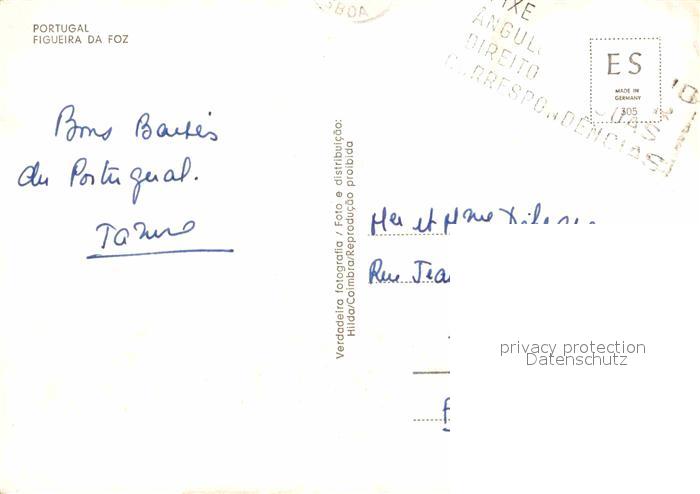 PORTUGAL
FIGUEIRA DA FOZ
Bons Baisés
du Portugal.
Verdadeira fotografia / Foto e distribuição:
Hilda/Coimbra/Reprodução proibida
ANGUL
DIREITO
ES
MADE IN
GERMANY
305
et Mme
Rue Jea
privacy protection
Datenschutz